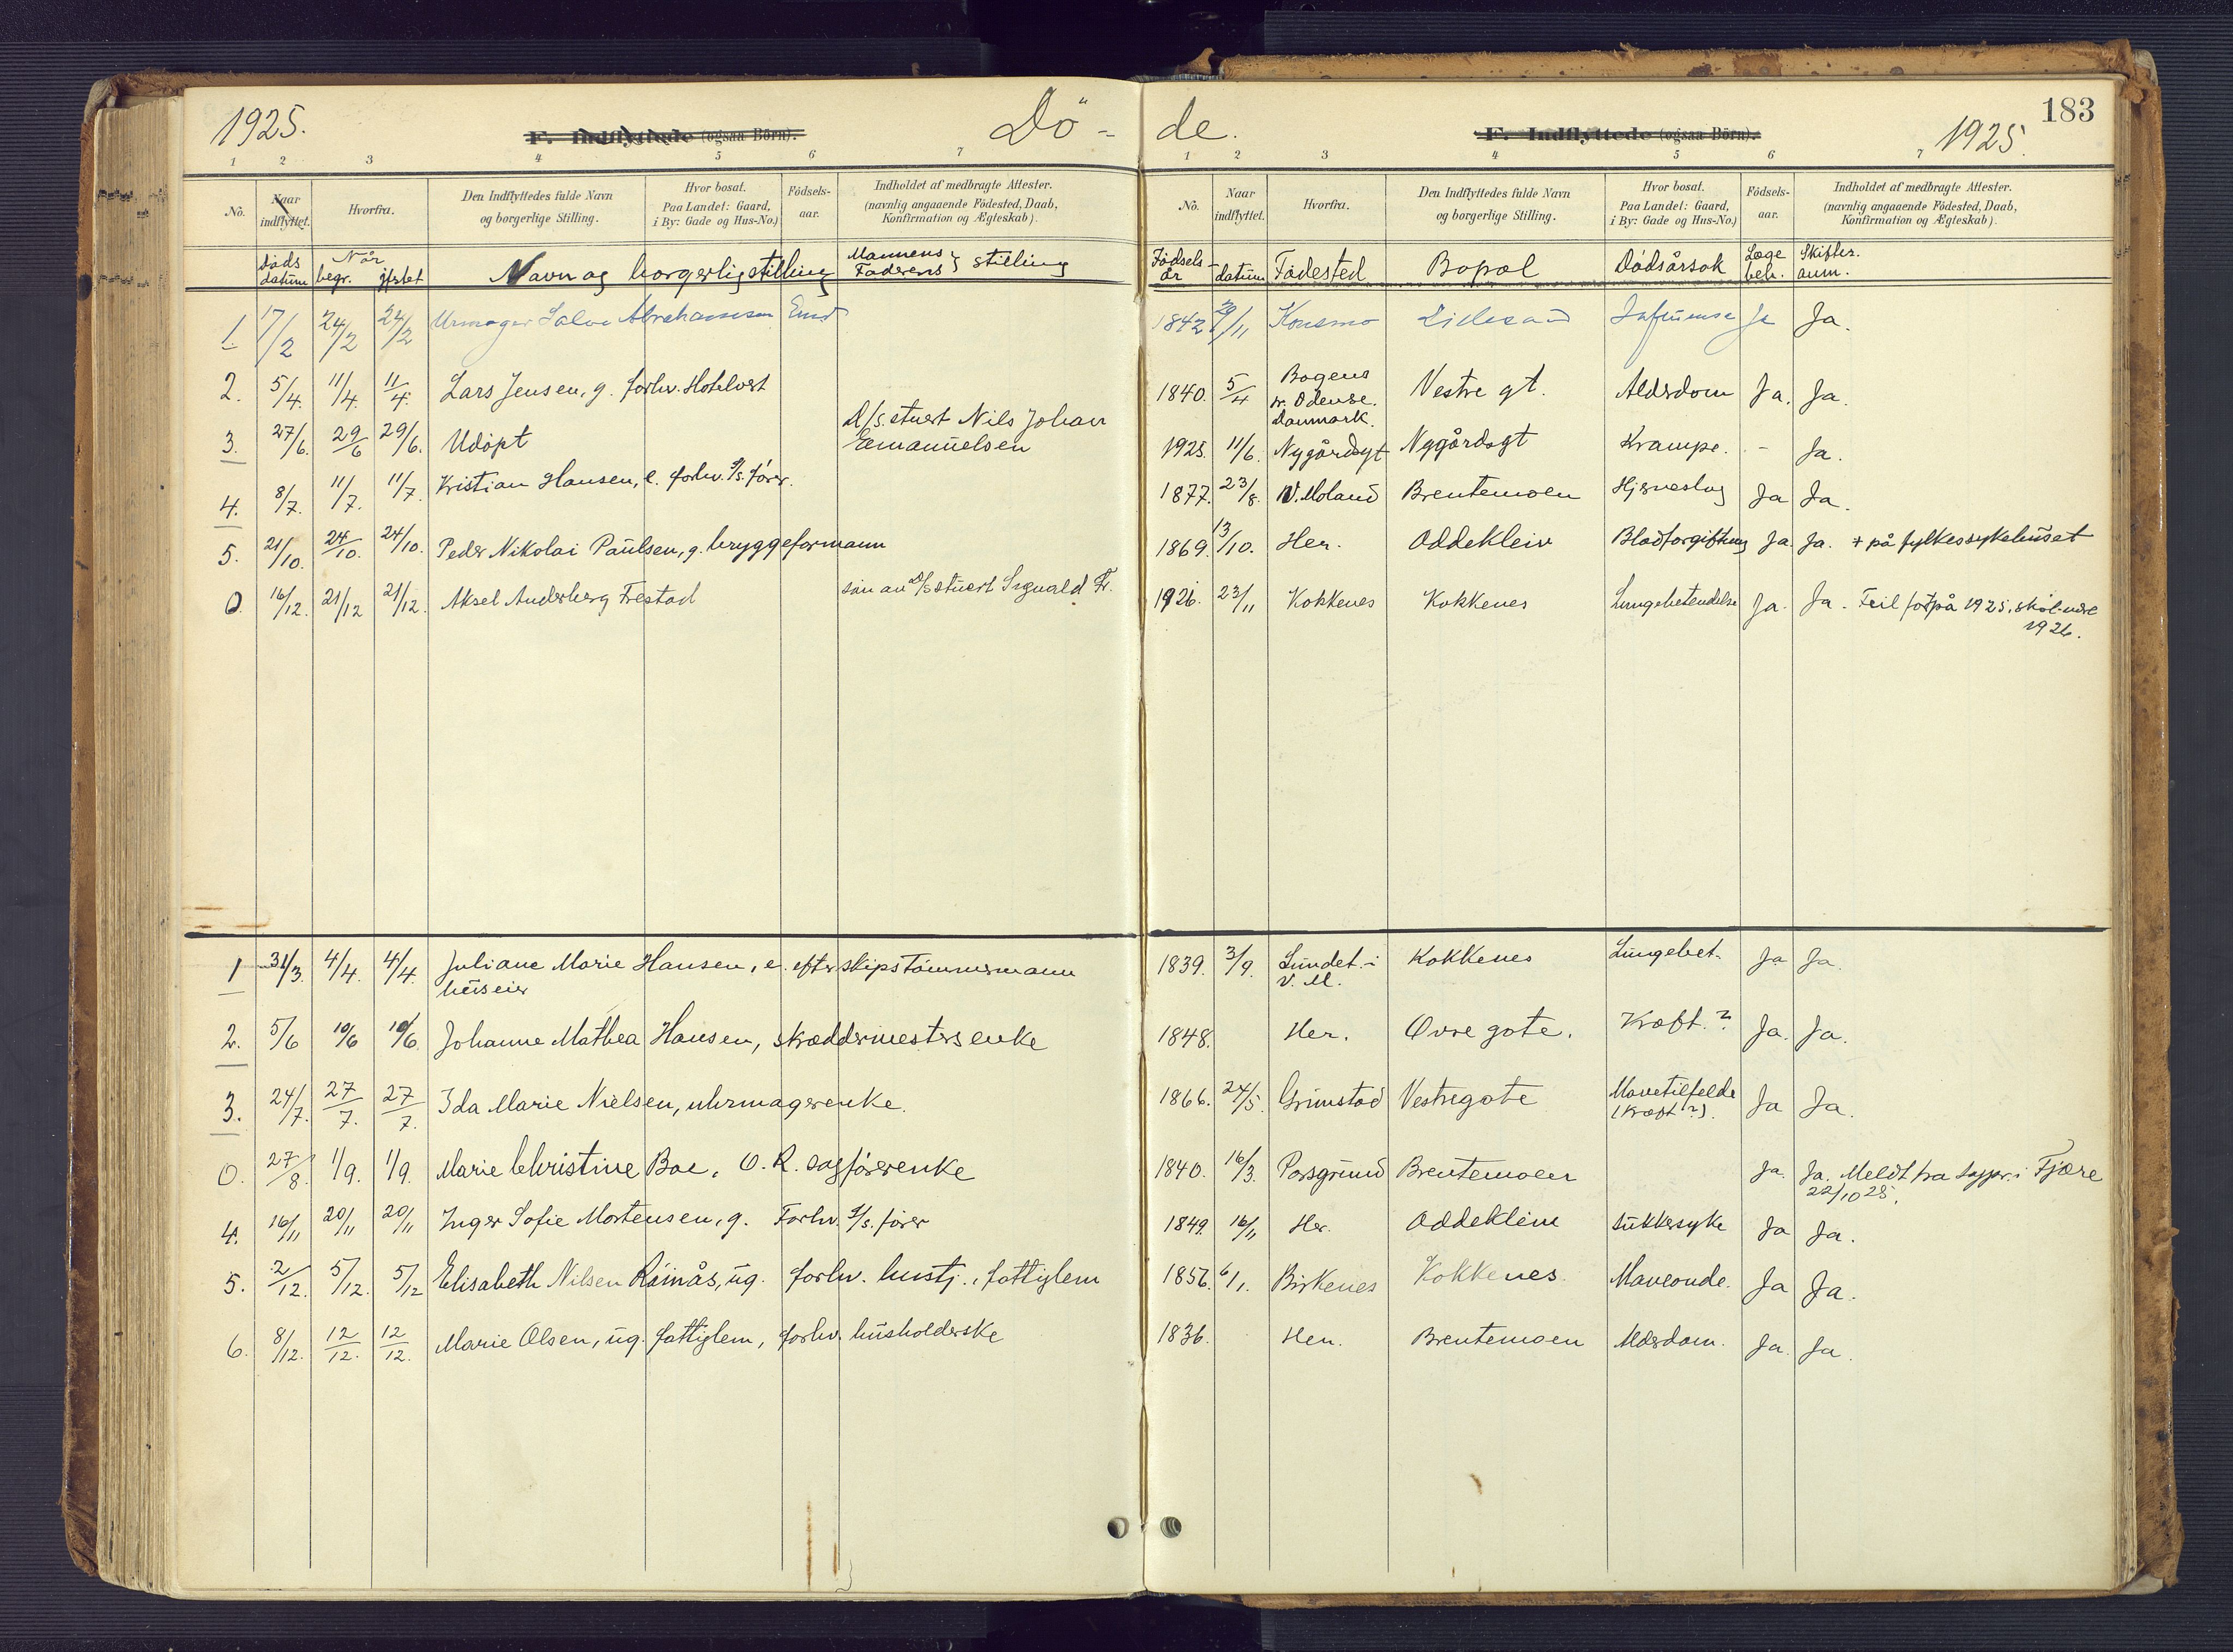 1925.
F. Indflyttede (ogsaa Börn).
Dö-
1 2 3 4 5 6 7
No.
Naar indflyttet.
Hvorfra.
Den Indflyttedes fulde Navn
og borgerlige Stilling.
Hvor bosat.
Paa Landet: Gaard,
i By: Gade og Hus-No.)
Födsels-
aar.
Indholdet af medbragte Attester.
(navnlig angaaende Födested, Daab,
Konfirmation og Ægteskab).
Döds datum
Når
begr. jfstet
Navn og borgerlig stilling
Mannens Faderens } stilling
1. 17/2 24/2 24/2 Urmager Salve Abrahamsen Emd
2. 5/4. 11/4. 11/4. Lars Jensen, g. forhv. Hotelvert
3. 27/6. 29/6 29/6. Udöpt D/s. stuert Nils Johan
Emanuelsen
4. 8/7. 11/7. 11/7. Kristian Hansen, e. forhv. S/s. förer.
5. 21/10. 24/10. 24/10. Peder Nikolai Paulsen, g. bryggeformann
0. 16/12. 21/12 21/12. Aksel Anderberg Frestad sön av D/s stuert Sigvald Fr.
1 31/3. 4/4. 4/4. Juliane Marie Hansen, e. efter skipstömmermann
huseier
2. 5/6 10/6 10/6. Johanne Mathea Hansen, skreddermesters enke
3. 24/7. 27/7. 27/7. Ida Marie Nielsen, uhrmagerenke.
0. 27/8. 1/9. 1/9. Marie Christine Boe, O. R. sagförerenke
4. 16/11 20/11 20/11 Inger Sofie Mortensen, g. Forhv. S/s. förer
5. 2/12. 5/12. 5/12 Elisabeth Nilsen Röinås, ug. forhv. hustj., fattiglem
6. 8/12. 12/12. 12/12. Marie Olsen, ug. fattiglem, forhv. husholderske
de.
F. Indflyttede (ogsaa Börn).
1925.
183
1 2 3 4 5 6 7
No.
Naar
indflyttet.
Hvorfra.
Den Indflyttedes fulde Navn
og borgerlige Stilling.
Hvor bosat.
Paa Landet: Gaard,
i By: Gade og Hus-No.)
Födsels-
aar.
Indholdet af medbragte Attester.
(navnlig angaaende Födested, Daab,
Konfirmation og Ægteskab).
Födsels-
år datum Födested Bopæl Dödsårsak Læge
beh. Skifter.
anm.
1842 29/11 Konsmo Lillesand Influense Ja Ja.
1840. 5/4 Bogens
nr. Odense.
Danmark. Vestre gt. Alderdom Ja. Ja.
1925. 11/6. Nygårdsgt Nygårdsgt Krampe. - Ja.
1877. 23/8. V. Moland Brentemoen Hjerneslag Ja Ja.
1869. 13/10. Her. Oddekleiv Blodforgiftning Ja. Ja. + på fylkessykehuset
1926. 23/11 Kokkenes Kokkenes Lungebetendelse Ja. Ja. Feil fört på 1925, skal være
1926.
1839. 3/9. Lundet i
V. M. Kokkenes Lungebet. Ja Ja.
1848. Her. Övre gate. Kræft.? Ja. Ja.
1866. 24/5. Grimstad Vestregate Mavetilfelde
(Kræft?). Ja Ja.
1840. 16/3. Porsgrund Brentemoen Ja. Ja. Meldt fra sogpr. i Fjære
22/10 25.
1849. 16/11 Her. Oddekleiv sukkersyke Ja Ja.
1856. 6/1. Birkenes Kokkenes. Maveonde. Ja Ja.
1836. Her. Brentemoen Alderdom. Ja. Ja.